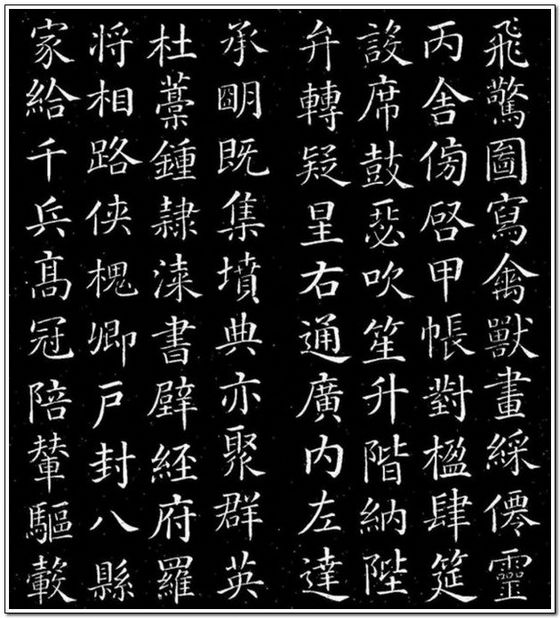 飛驚圖寫禽獸畫綵僊靈
丙舎傍啓甲帳對楹肆筵
設席鼓瑟吹笙升階納陛
弁轉疑星右通廣内左達
承明既集墳典亦聚群英
杜藁鍾隷漆書壁経府羅
将相路侠槐卿戸封八縣
家給千兵髙冠陪輦驅轂